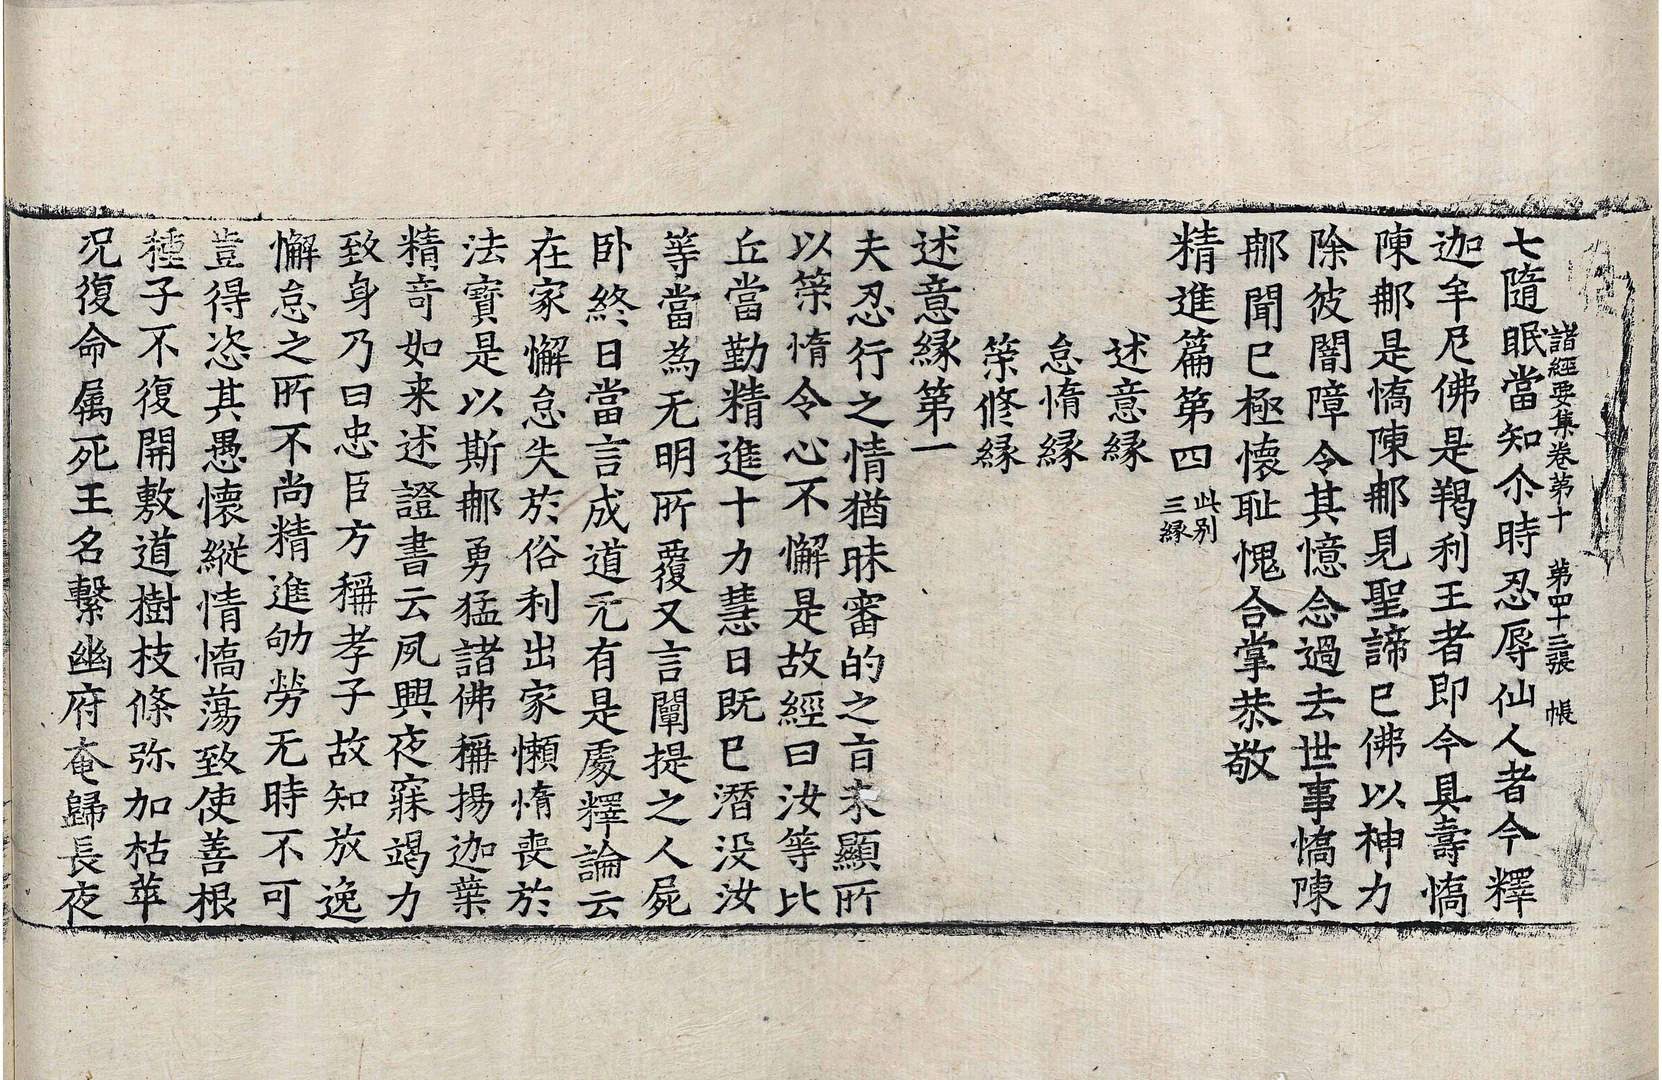 諸經要集卷第十　第四十三張　帳
七隨眠當知尒時忍辱仙人者今釋
迦牟尼佛是羯利王者即今具壽憍
陳𨙻是憍陳𨙻見聖諦已佛以神力
除彼闇障令其憶念過去世事憍陳
𨙻聞已極懷耻愧合掌恭敬
精進篇第四 此别三縁
述意縁
怠惰縁
䇿修縁
述意縁第一
夫忍行之情猶昧審的之旨未顯所
以䇿惰令心不懈是故經曰汝等比
丘當勤精進十力慧日既已潛没汝
等當為无明所覆又言闡提之人屍
卧終日當言成道无有是處釋論云
在家懈怠失於俗利出家懶惰喪於
法寶是以斯𨙻勇猛諸佛稱揚迦葉
精竒如来述證書云夙興夜寐竭力
致身乃曰忠臣方稱孝子故知放逸
懈怠之所不尚精進劬勞无時不可
豈得恣其愚懷縱情憍蕩致使善根
種子不復開敷道樹枝條弥加枯萃
况復命属死王名繫幽府奄歸長夜